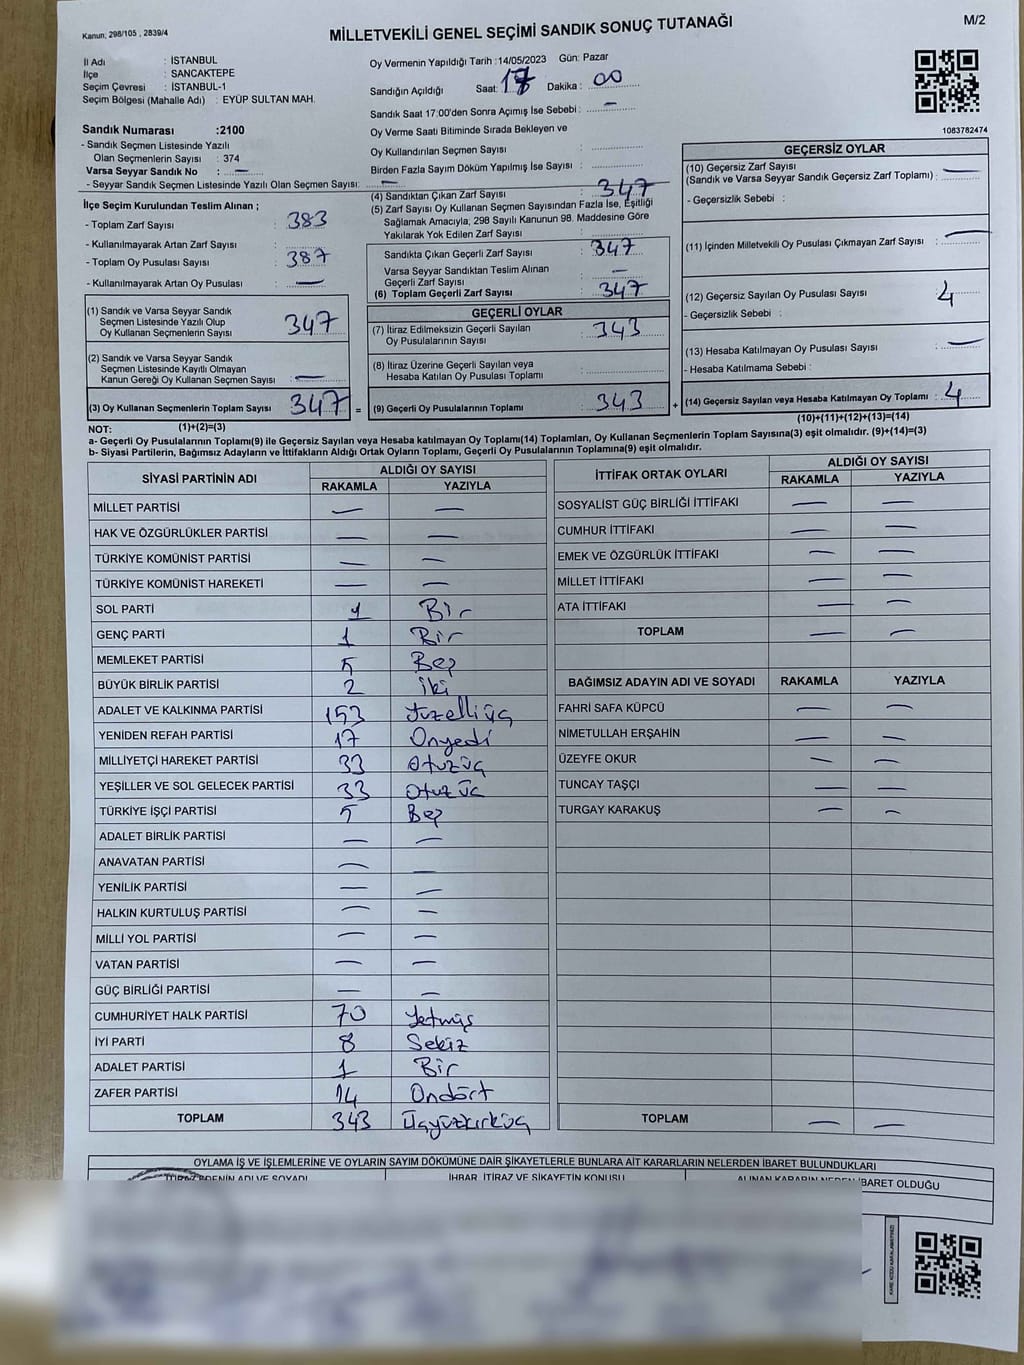 Kanun; 298/105 , 2839/4
MİLLETVEKİLİ GENEL SEÇİMİ SANDIK SONUÇ TUTANAĞI
M/2
İl Adı : İSTANBUL
İlçe : SANCAKTEPE
Seçim Çevresi : İSTANBUL-1
Seçim Bölgesi (Mahalle Adı) : EYÜP SULTAN MAH.
Oy Vermenin Yapıldığı Tarih :14/05/2023 Gün: Pazar
Sandığın Açıldığı Saat: 17 Dakika : 00
Sandık Saat 17:00'den Sonra Açımış İse Sebebi : —
Oy Verme Saati Bitiminde Sırada Bekleyen ve
Oy Kullandırılan Seçmen Sayısı :
Birden Fazla Sayım Döküm Yapılmış İse Sayısı :
1083782474
Sandık Numarası :2100
- Sandık Seçmen Listesinde Yazılı
Olan Seçmenlerin Sayısı : 374
Varsa Seyyar Sandık No : —
- Seyyar Sandık Seçmen Listesinde Yazılı Olan Seçmen Sayısı: —
İlçe Seçim Kurulundan Teslim Alınan ;
- Toplam Zarf Sayısı : 383
- Kullanılmayarak Artan Zarf Sayısı :
- Toplam Oy Pusulası Sayısı : 387
- Kullanılmayarak Artan Oy Pusulası : —
(1) Sandık ve Varsa Seyyar Sandık
Seçmen Listesinde Yazılı Olup
Oy Kullanan Seçmenlerin Sayısı 347
(2) Sandık ve Varsa Seyyar Sandık
Seçmen Listesinde Kayıtlı Olmayan
Kanun Gereği Oy Kullanan Seçmen Sayısı : —
(3) Oy Kullanan Seçmenlerin Toplam Sayısı 347 =
(1)+(2)=(3)
(4) Sandıktan Çıkan Zarf Sayısı : 347
(5) Zarf Sayısı Oy Kullanan Seçmen Sayısından Fazla İse, Eşitliği
Sağlamak Amacıyla, 298 Sayılı Kanunun 98. Maddesine Göre
Yakılarak Yok Edilen Zarf Sayısı :
Sandıkta Çıkan Geçerli Zarf Sayısı : 347
Varsa Seyyar Sandıktan Teslim Alınan
Geçerli Zarf Sayısı : —
(6) Toplam Geçerli Zarf Sayısı : 347
GEÇERLİ OYLAR
(7) İtiraz Edilmeksizin Geçerli Sayılan
Oy Pusulalarının Sayısı : 343
(8) İtiraz Üzerine Geçerli Sayılan veya
Hesaba Katılan Oy Pusulası Toplamı :
(9) Geçerli Oy Pusulalarının Toplamı : 343 +
GEÇERSİZ OYLAR
(10) Geçersiz Zarf Sayısı
(Sandık ve Varsa Seyyar Sandık Geçersiz Zarf Toplamı) : —
- Geçersizlik Sebebi :
(11) İçinden Milletvekili Oy Pusulası Çıkmayan Zarf Sayısı : —
(12) Geçersiz Sayılan Oy Pusulası Sayısı : 4
- Geçersizlik Sebebi :
(13) Hesaba Katılmayan Oy Pusulası Sayısı : —
- Hesaba Katılmama Sebebi :
(14) Geçersiz Sayılan veya Hesaba Katılmayan Oy Toplamı : 4
(10)+(11)+(12)+(13)=(14)
NOT:
a- Geçerli Oy Pusulalarının Toplamı(9) ile Geçersiz Sayılan veya Hesaba katılmayan Oy Toplamı(14) Toplamları, Oy Kullanan Seçmenlerin Toplam Sayısına(3) eşit olmalıdır. (9)+(14)=(3)
b- Siyasi Partilerin, Bağımsız Adayların ve İttifakların Aldığı Ortak Oyların Toplamı, Geçerli Oy Pusulalarının Toplamına(9) eşit olmalıdır.
SİYASİ PARTİNİN ADI ALDIĞI OY SAYISI
RAKAMLA YAZIYLA
MİLLET PARTİSİ — —
HAK VE ÖZGÜRLÜKLER PARTİSİ — —
TÜRKİYE KOMÜNİST PARTİSİ — —
TÜRKİYE KOMÜNİST HAREKETİ — —
SOL PARTİ 1 Bir
GENÇ PARTİ 1 Bir
MEMLEKET PARTİSİ 5 Beş
BÜYÜK BİRLİK PARTİSİ 2 İki
ADALET VE KALKINMA PARTİSİ 153 Yüzelliüç
YENİDEN REFAH PARTİSİ 17 Onyedi
MİLLİYETÇİ HAREKET PARTİSİ 33 Otuzüç
YEŞİLLER VE SOL GELECEK PARTİSİ 33 Otuzüç
TÜRKİYE İŞÇİ PARTİSİ 5 Beş
ADALET BİRLİK PARTİSİ — —
ANAVATAN PARTİSİ — —
YENİLİK PARTİSİ — —
HALKIN KURTULUŞ PARTİSİ — —
MİLLİ YOL PARTİSİ — —
VATAN PARTİSİ — —
GÜÇ BİRLİĞİ PARTİSİ — —
CUMHURİYET HALK PARTİSİ 70 Yetmiş
İYİ PARTİ 8 Sekiz
ADALET PARTİSİ 1 Bir
ZAFER PARTİSİ 14 Ondört
TOPLAM 343 Üçyüzkırküç
İTTİFAK ORTAK OYLARI ALDIĞI OY SAYISI
RAKAMLA YAZIYLA
SOSYALİST GÜÇ BİRLİĞİ İTTİFAKI — —
CUMHUR İTTİFAKI — —
EMEK VE ÖZGÜRLÜK İTTİFAKI — —
MİLLET İTTİFAKI — —
ATA İTTİFAKI — —
TOPLAM — —
BAĞIMSIZ ADAYIN ADI VE SOYADI RAKAMLA YAZIYLA
FAHRİ SAFA KÜPCÜ — —
NİMETULLAH ERŞAHİN — —
ÜZEYFE OKUR — —
TUNCAY TAŞÇI — —
TURGAY KARAKUŞ — —
TOPLAM — —
OYLAMA İŞ VE İŞLEMLERİNE VE OYLARIN SAYIM DÖKÜMÜNE DAİR ŞİKAYETLERLE BUNLARA AİT KARARLARIN NELERDEN İBARET BULUNDUKLARI
İHBAR, İTİRAZ VE ŞİKAYETİN KONUSU
ALINAN KARARIN NEDEN İBARET OLDUĞU